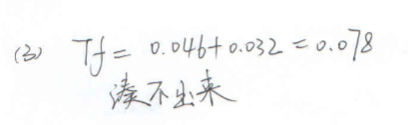 (3) Tf = 0.046+0.032 = 0.078
凑不出来